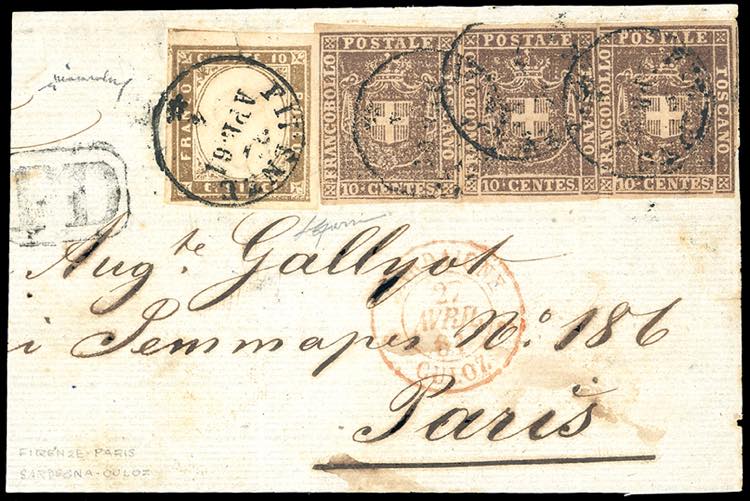 FRANCO 10
C.
FIRENZE
APR. 61
FRANCOBOLLO POSTALE
10 CENTES
FRANCOBOLLO POSTALE
10 CENTES
FRANCOBOLLO POSTALE TOSCANO
10 CENTES
PD
Augte Gallyot
i Jemmapes No. 186
Paris
SARDAIGNE
27
AVRIL
61
CULOZ
FIRENZE-PARIS
SARDEGNA-CULOZ